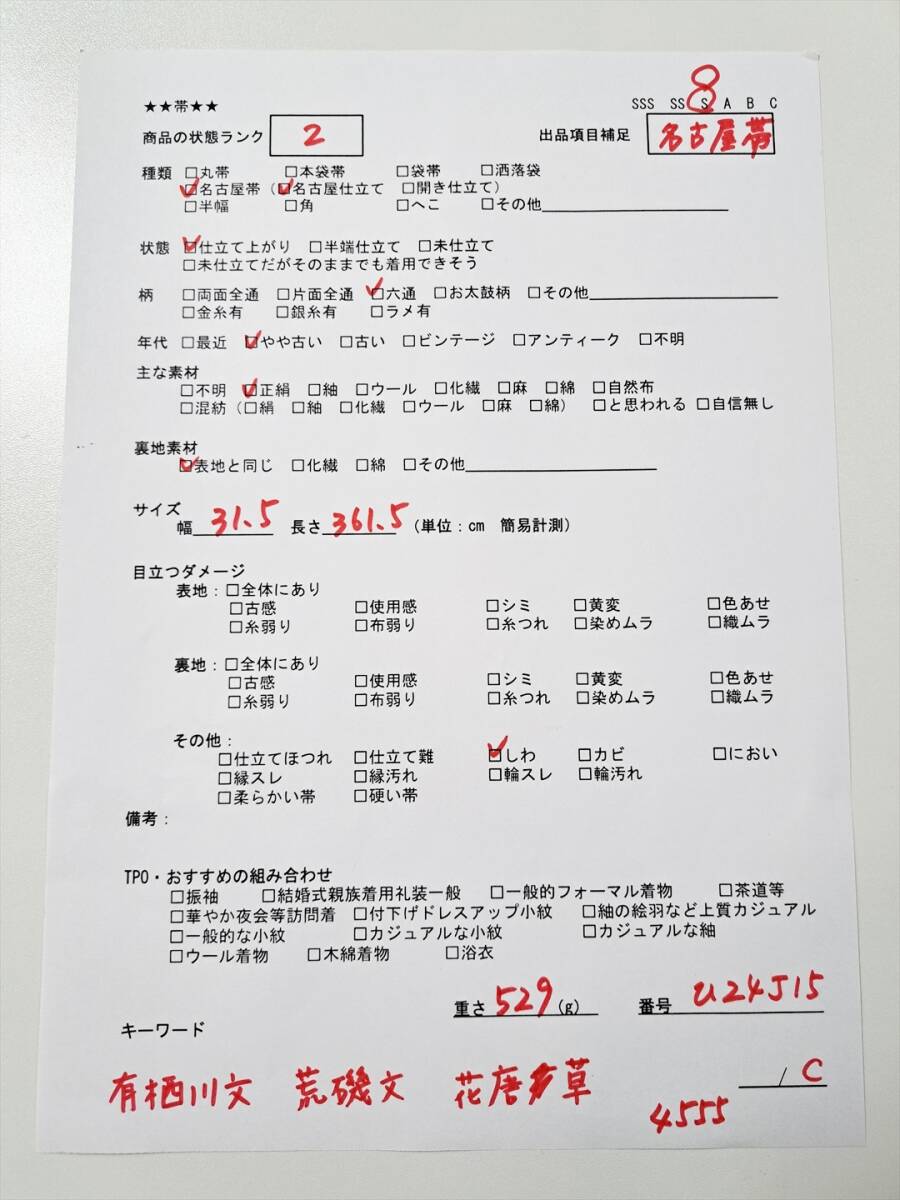 ★★帯★★
SSS SS S A B C
8
商品の状態ランク 2 出品項目補足 名古屋帯
種類 □丸帯 □本袋帯 □袋帯 □洒落袋
☑名古屋帯（☑名古屋仕立て □開き仕立て）
□半幅 □角 □へこ □その他
状態 ☑仕立て上がり □半端仕立て □未仕立て
□未仕立てだがそのままでも着用できそう
柄 □両面全通 □片面全通 ☑六通 □お太鼓柄 □その他
□金糸有 □銀糸有 □ラメ有
年代 □最近 ☑やや古い □古い □ビンテージ □アンティーク □不明
主な素材
□不明 ☑正絹 □紬 □ウール □化繊 □麻 □綿 □自然布
□混紡（□絹 □紬 □化繊 □ウール □麻 □綿） □と思われる □自信無し
裏地素材
☑表地と同じ □化繊 □綿 □その他
サイズ
幅 31.5 長さ 361.5 （単位：cm 簡易計測）
目立つダメージ
表地：□全体にあり
□古感 □使用感 □シミ □黄変 □色あせ
□糸弱り □布弱り □糸つれ □染めムラ □織ムラ
裏地：□全体にあり
□古感 □使用感 □シミ □黄変 □色あせ
□糸弱り □布弱り □糸つれ □染めムラ □織ムラ
その他：
□仕立てほつれ □仕立て難 ☑しわ □カビ □におい
□縁スレ □縁汚れ □輪スレ □輪汚れ
□柔らかい帯 □硬い帯
備考：
TPO・おすすめの組み合わせ
□振袖 □結婚式親族着用礼装一般 □一般的フォーマル着物 □茶道等
□華やか夜会等訪問着 □付下げドレスアップ小紋 □紬の絵羽など上質カジュアル
□一般的な小紋 □カジュアルな小紋 □カジュアルな紬
□ウール着物 □木綿着物 □浴衣
重さ 529 (g) 番号 U24J15
キーワード
有栖川文 荒磯文 花唐草
/ C
4555